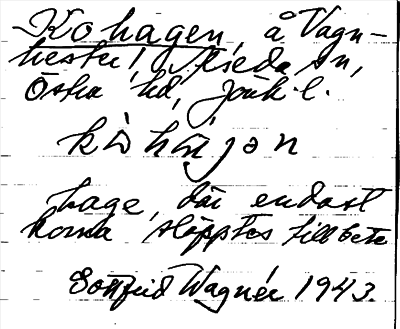 Kohagen, å Vagn-
hester, Alseda sn,
Östra hd, Jönk. l.
kòhágan
hage, där endast
korna släpptes till bete
Gottfrid Wagnér 1943.